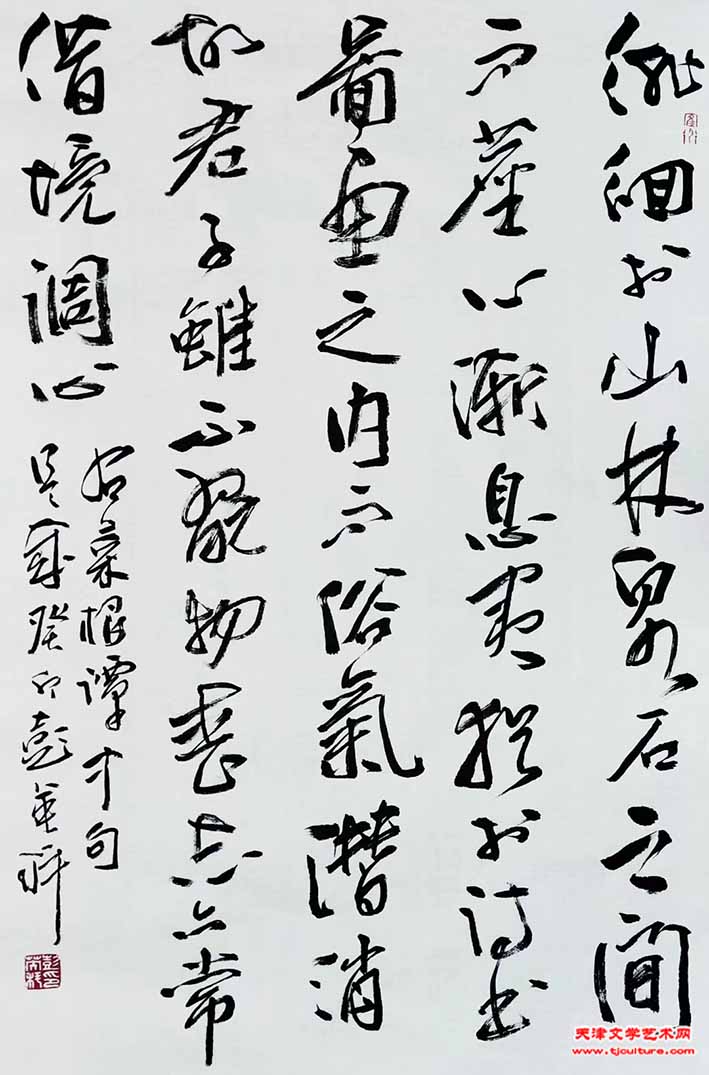 徘徊於山林泉石之間
而塵心漸息夷猶於詩書
圖畫之內而俗氣潛消
故君子雖不翫物喪志亦常
借境調心
右菜根譚中句
是歲癸卯彭英科
天津文学艺术网
www.tjculture.com